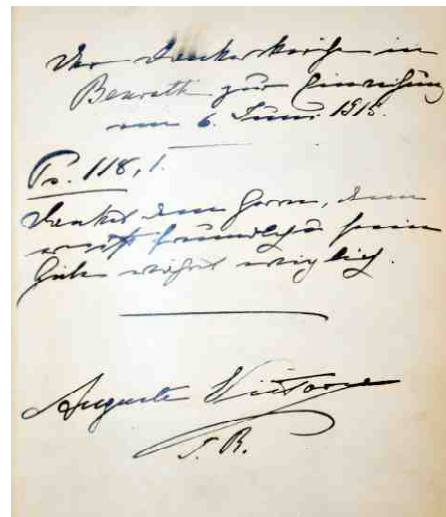 Der Dankeskirche in
Benrath zur Einweihung
am 6. Juni 1915.
Ps. 118,1.
Danket dem Herrn, denn
er ist freundlich u seine
Güte währet ewiglich.
Auguste Victoria
I. R.